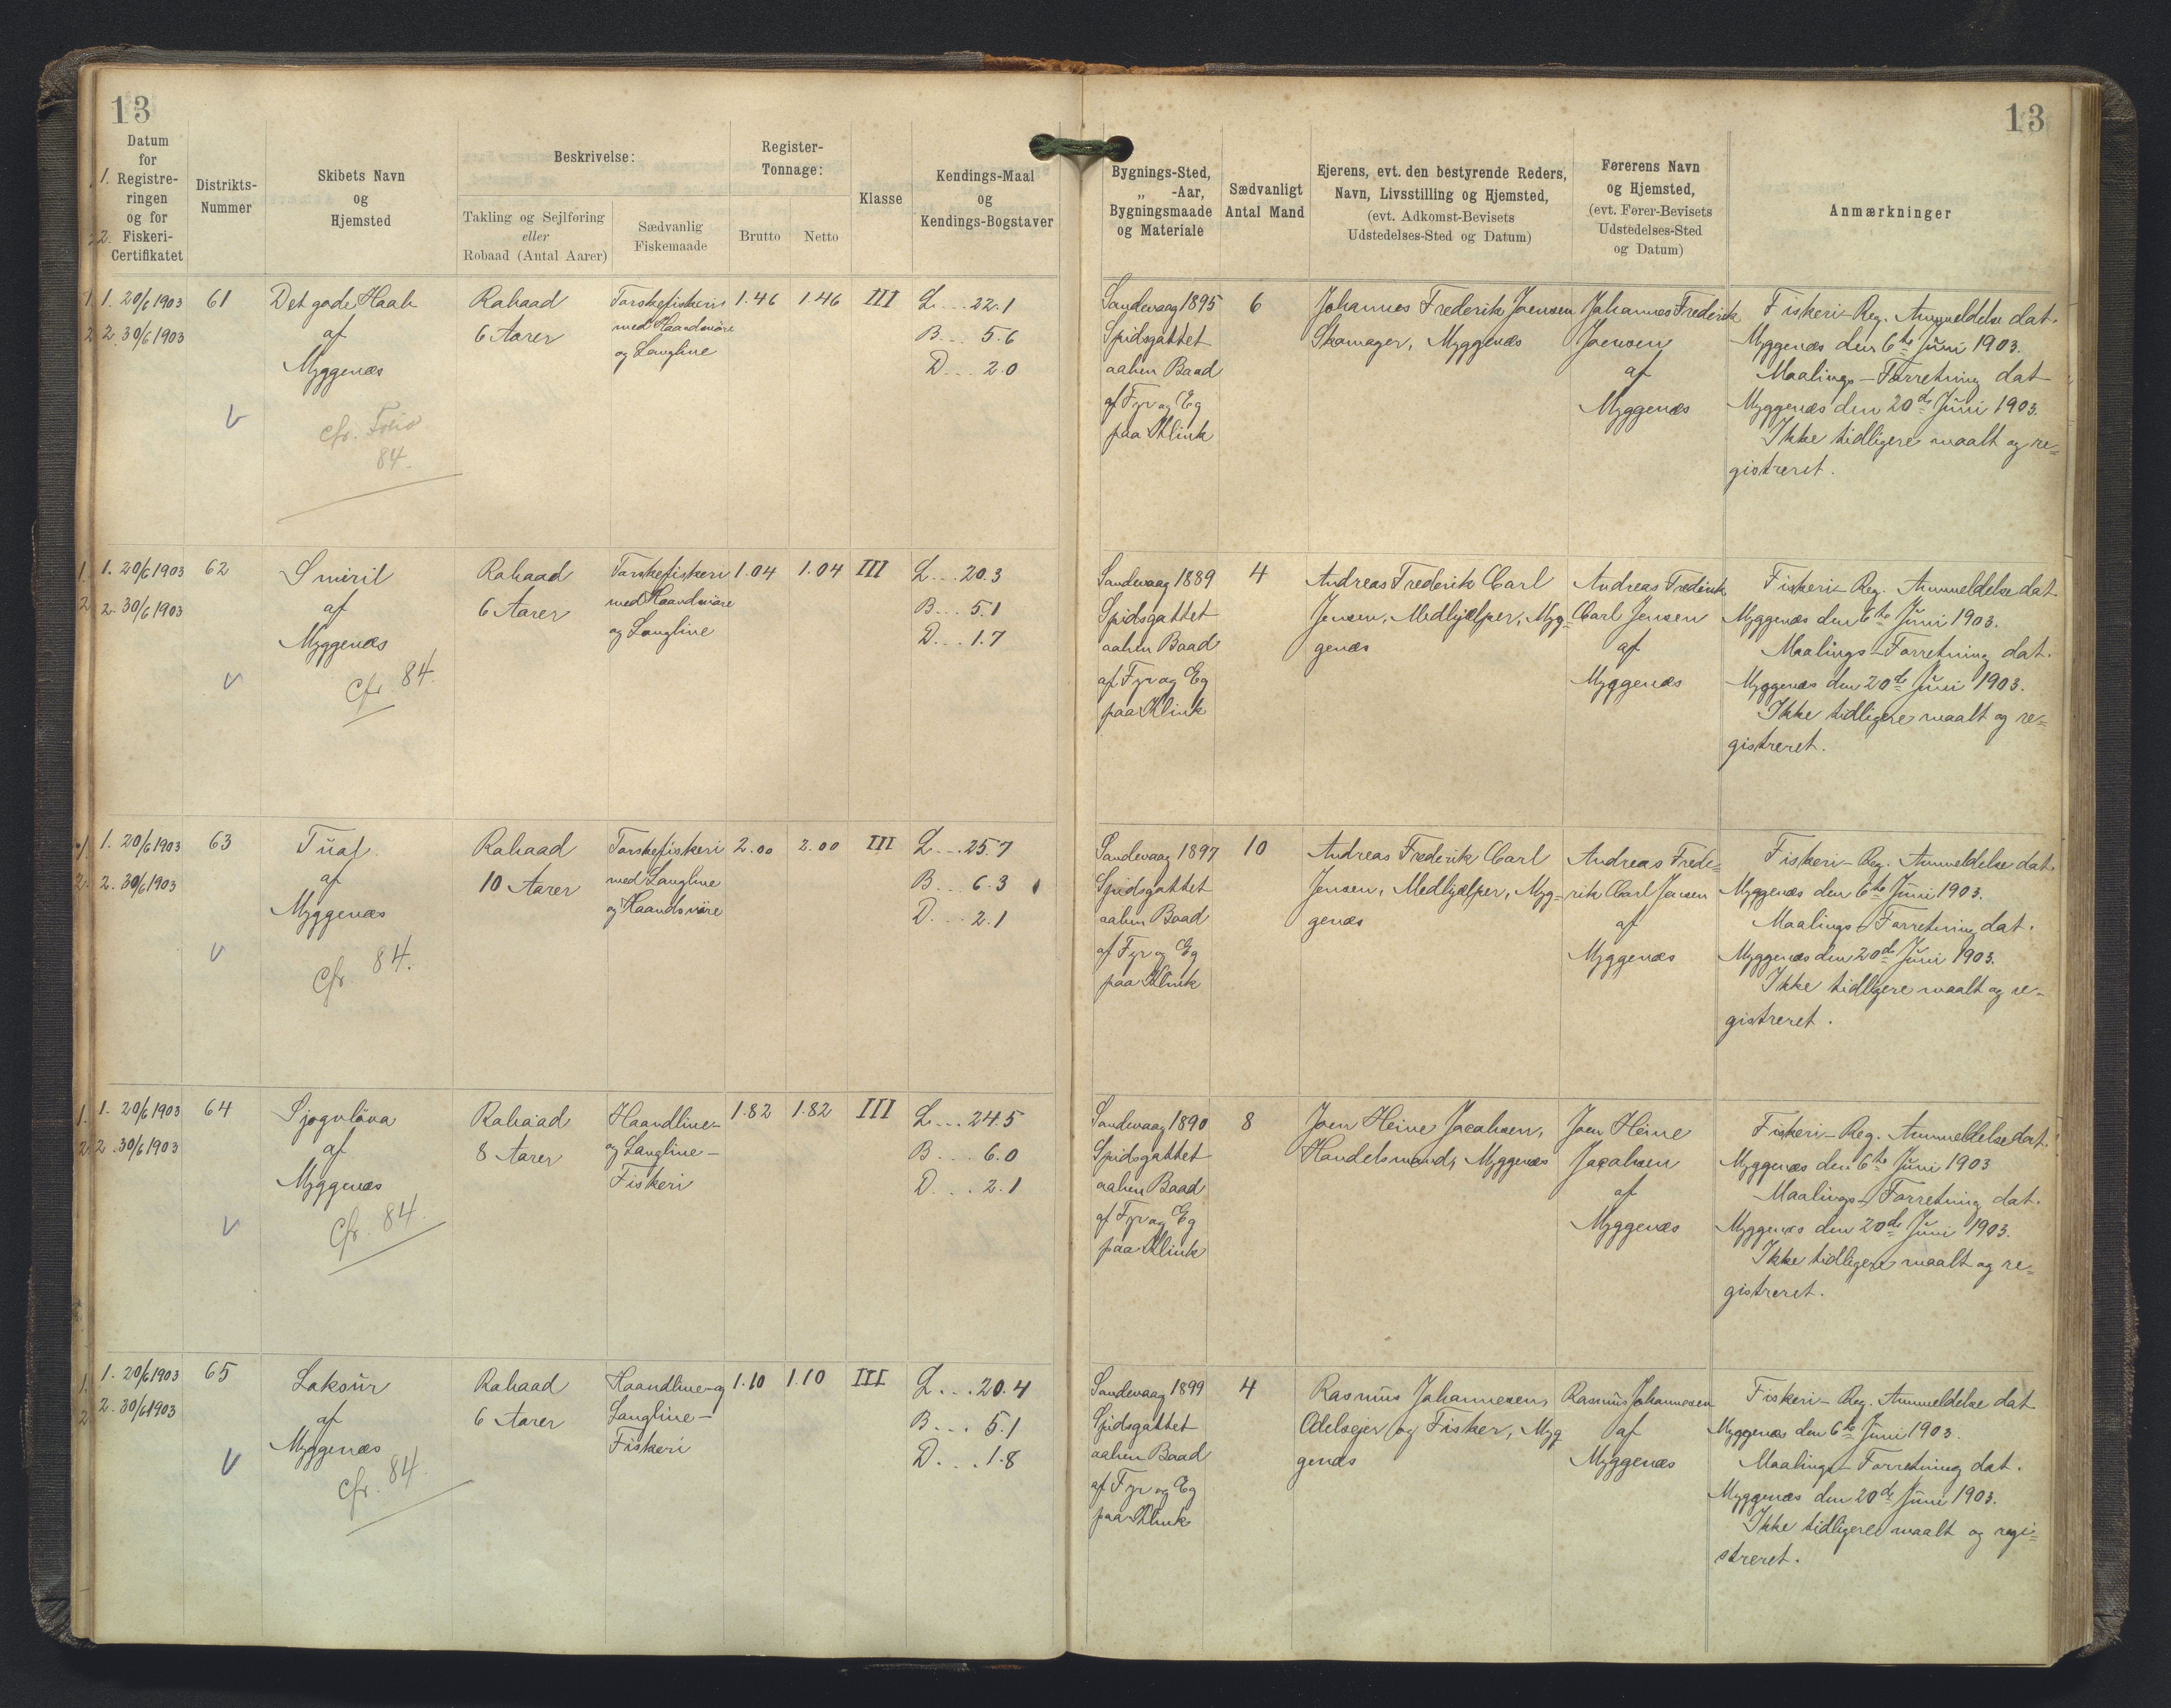 13
13
Datum
for
1. Registre-
ringen
og for
2. Fiskeri-
Certifikatet
Distrikts-
Nummer
Skibets Navn
og
Hjemsted
Beskrivelse:
Takling og Sejlføring
eller
Robaad (Antal Aarer)
Sædvanlig
Fiskemaade
Register-
Tonnage:
Brutto
Netto
Klasse
Kendings-Maal
og
Kendings-Bogstaver
Bygnings-Sted,
„ -Aar,
Bygningsmaade
og Materiale
Sædvanligt
Antal Mand
Ejerens, evt. den bestyrende Reders,
Navn, Livsstilling og Hjemsted,
(evt. Adkomst-Bevisets
Udstedelses-Sted og Datum)
Førerens Navn
og Hjemsted,
(evt. Fører-Bevisets
Udstedelses-Sted
og Datum)
Anmærkninger
1. 20/6 1903
2. 30/6 1903
61
Det gode Haab
af
Myggenæs
cfr. Folio
84.
Robaad
6 Aarer
Torskefiskeri
med Haandsnøre
og Langline
1.46
1.46
III
L... 22.1
B... 5.6
D... 2.0
Sandevaag 1895
Spidsgattet
aaben Baad
af Fyr og Eg
paa Klink
6
Johannes Frederik Joensen
Skomager, Myggenæs
Johannes Frederik
Joensen
af
Myggenæs
Fiskeri-Reg. Anmeldelse dat.
Myggenæs den 6te Juni 1903.
Maalings-Forretning dat
Myggenæs den 20de Juni 1903.
Ikke tidligere maalt og re=
gistreret.
1. 20/6 1903
2. 30/6 1903
62
Smiril
af
Myggenæs
Cfr 84.
Robaad
6 Aarer
Torskefiskeri
med Haandsnøre
og Langline
1.04
1.04
III
L... 20.3
B... 5.1
D... 1.7
Sandevaag 1889
Spidsgattet
aaben Baad
af Fyr og Eg
paa Klink
4
Andreas Frederik Carl
Jensen, Medhjælper, Myg=
genæs
Andreas Frederik
Carl Jensen
af
Myggenæs
Fiskeri-Reg. Anmeldelse dat
Myggenæs den 6te Juni 1903.
Maalings-Forretning dat.
Myggenæs den 20de Juni 1903.
Ikke tidligere maalt og re=
gistreret.
1. 20/6 1903
2. 30/6 1903
63
af
Myggenæs
Cfr. 84.
Robaad
10 Aarer
Torskefiskeri
med Langline
og Haandsnøre
2.00
2.00
III
L... 25.7
B... 6.3
D... 2.1
Sandevaag 1897
Spidsgattet
aaben Baad
af Fyr og Eg
paa Klink
10
Andreas Frederik Carl
Jensen, Medhjælper, Myg=
genæs
Andreas Frede=
rik Carl Jensen
af
Myggenæs
Fiskeri-Reg. Anmeldelse dat.
Myggenæs den 6te Juni 1903.
Maalings-Forretning dat.
Myggenæs den 20de Juni 1903.
Ikke tidligere maalt og re-
gistreret.
1. 20/6 1903
2. 30/6 1903
64
Sjogvlöva
af
Myggenæs
Cfr. 84.
Robaad
8 Aarer
Haandline-
og Langline-
Fiskeri
1.82
1.82
III
L... 24.5
B... 6.0
D... 2.1
Sandevaag 1890
Spidsgattet
aaben Baad
af Fyr og Eg
paa Klink
8
Joen Heine Jacobsen,
Handelsmand, Myggenæs
Joen Heine
Jacobsen
af
Myggenæs
Fiskeri-Reg. Anmeldelse dat.
Myggenæs den 6te Juni 1903
Maalings-Forretning dat.
Myggenæs den 20de Juni 1903.
Ikke tidligere maalt og re=
gistreret.
1. 20/6 1903
2. 30/6 1903
65
Laksur
af
Myggenæs
cfr. 84.
Robaad
6 Aarer
Haandline-og
Langline-
Fiskeri
1.10
1.10
III
L... 20.4
B... 5.1
D... 1.8
Sandevaag 1899
Spidsgattet
aaben Baad
af Fyr og Eg
paa Klink
4
Rasmus Johannesen,
Odelsejer og Fisker, Myg
genæs
Rasmus Johannesen
af
Myggenæs
Fiskeri-Reg. Anmeldelse dat
Myggenæs den 6te Juni 1903.
Maalings-Forretning dat.
Myggenæs den 20de Juni 1903.
Ikke tidligere maalt og regi=
streret.